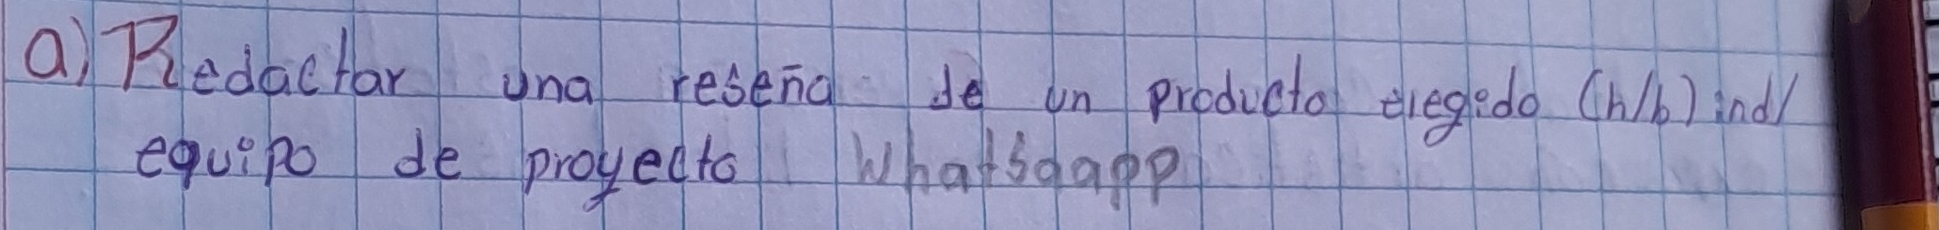 a) Redactar una reseña de un producto elegido (h/b) ind/
equipo de proyecto Whatsgapp